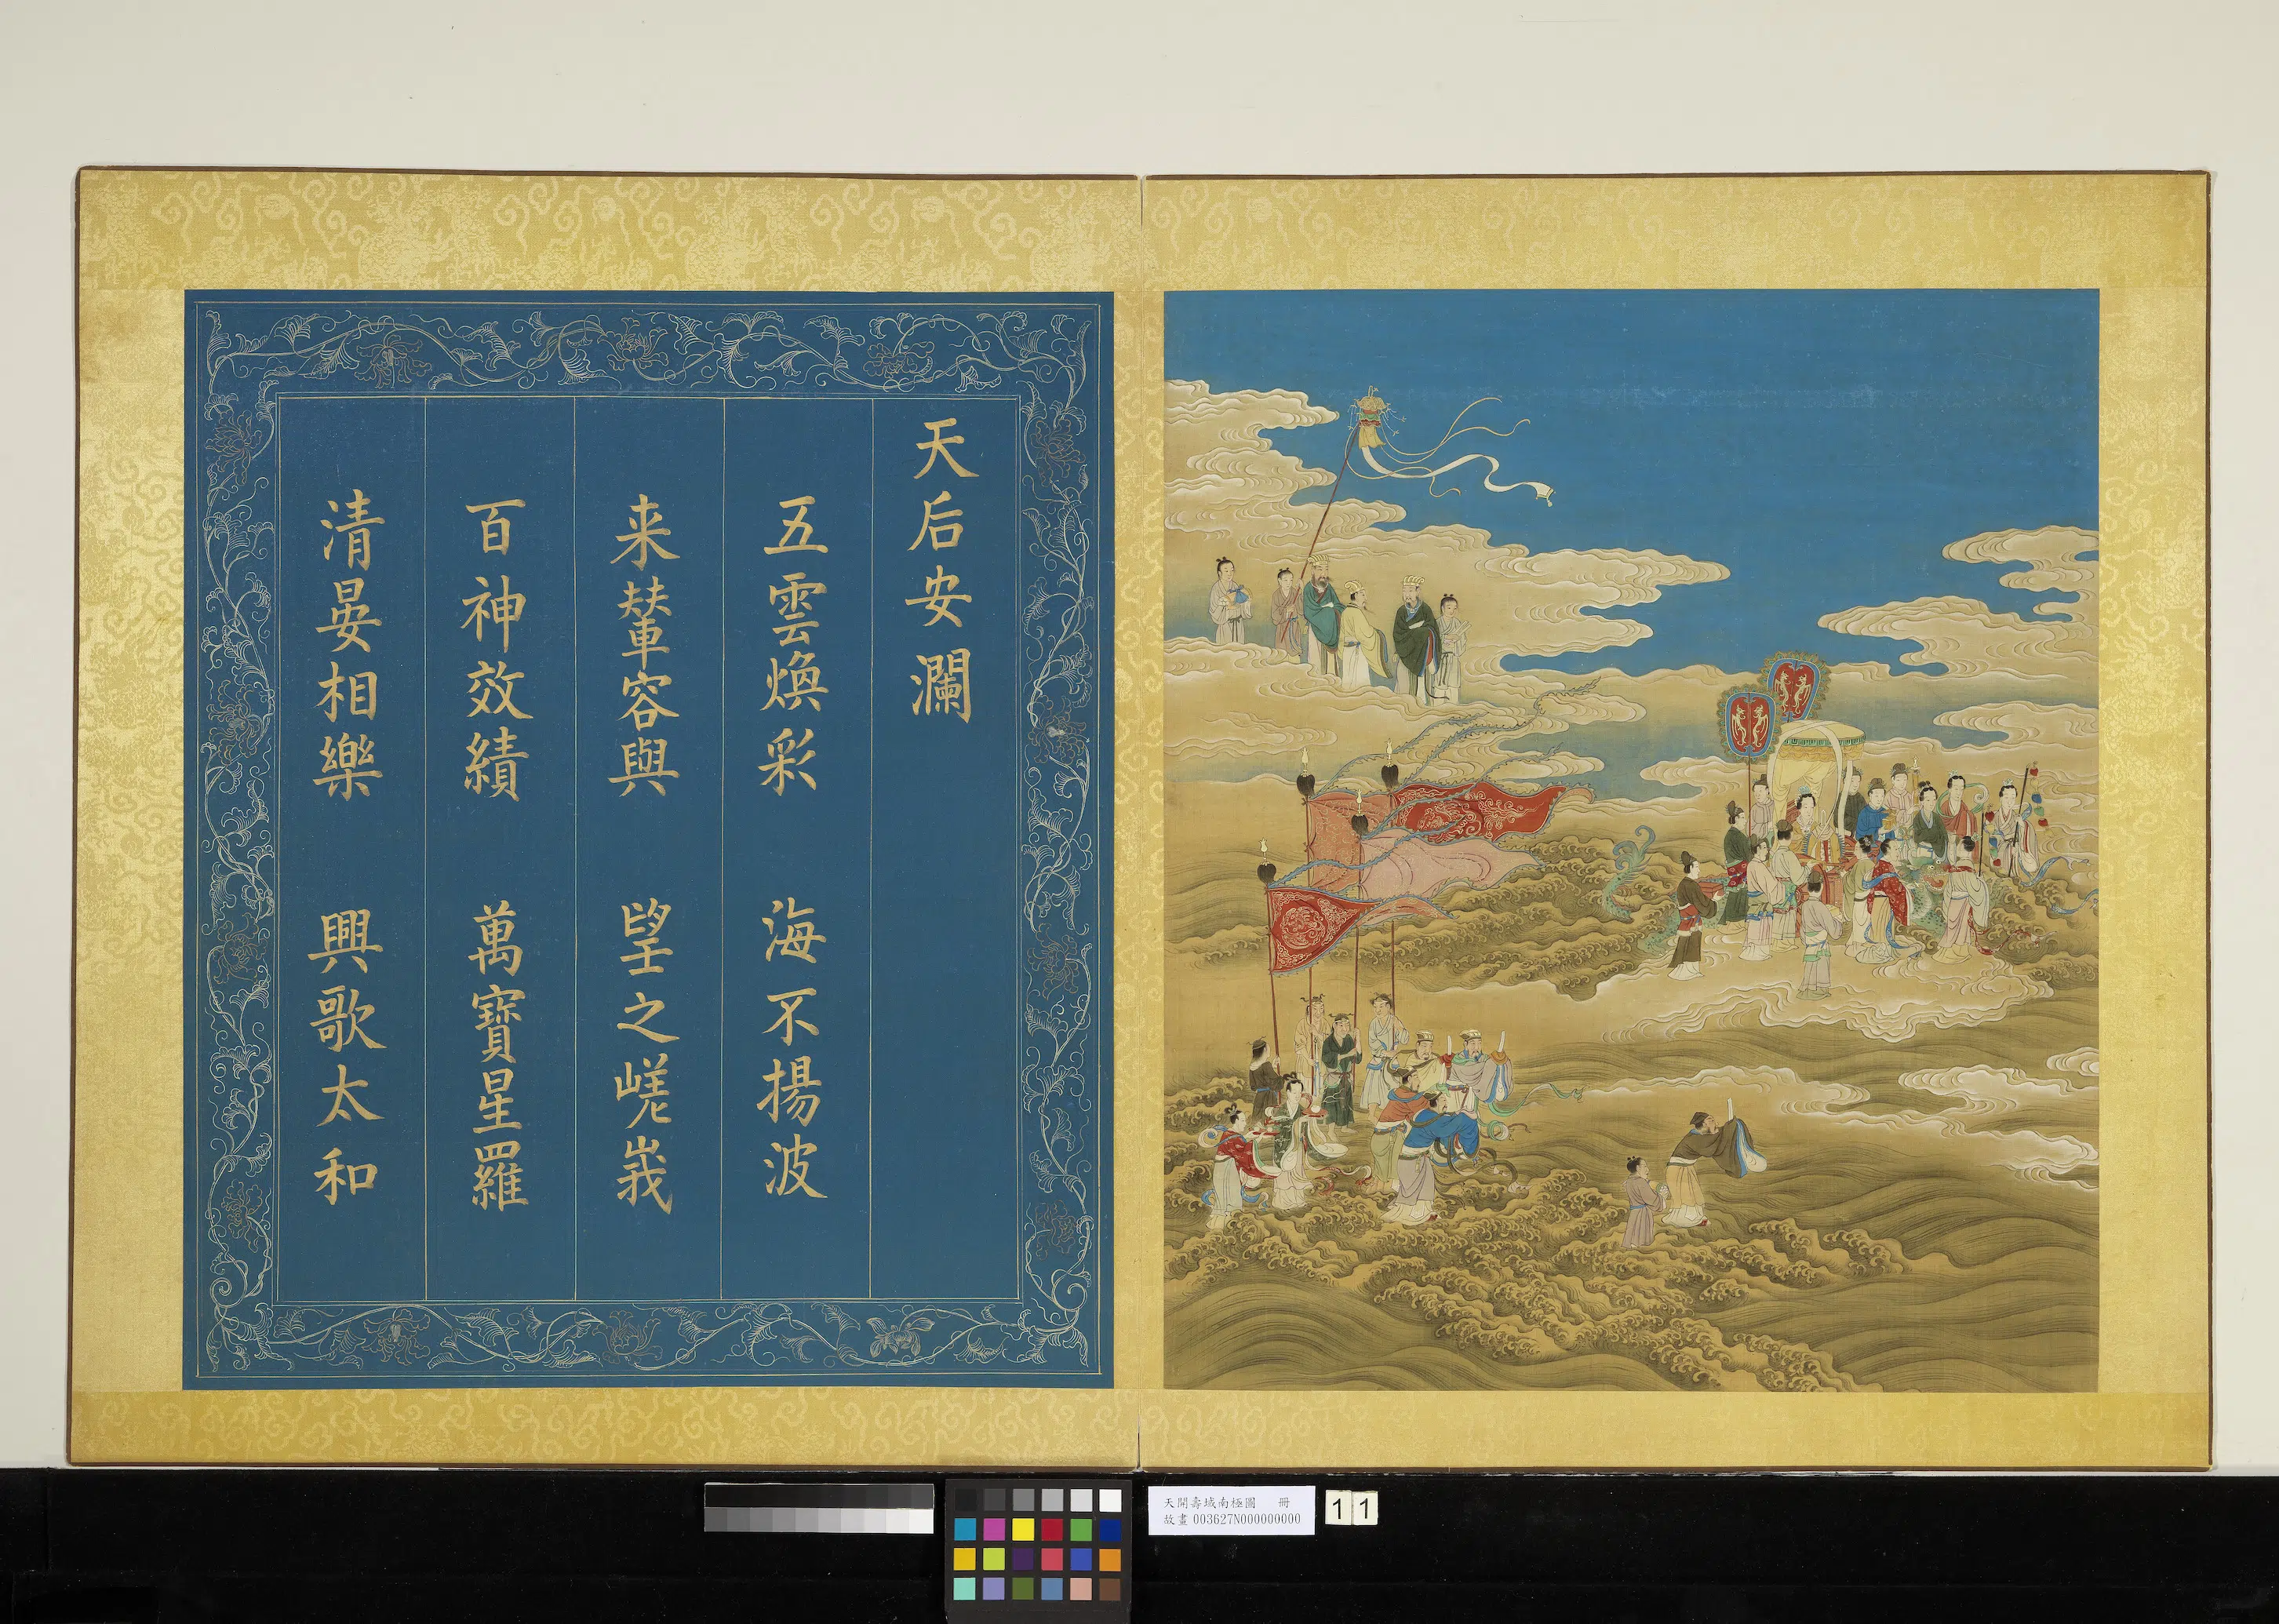 天后安瀾
五雲煥彩　海不揚波
来輦容與　望之嵯峩
百神效績　萬寶星羅
清晏相樂　興歌太和
天開壽域南極圖　冊
故畫 003627N000000000
11